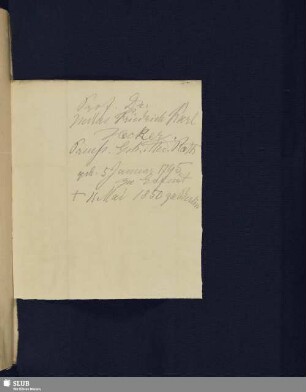 Prof. Dr.
Justus Friedrich Karl
Hecker
Preuß. Geh. Med. Rath
geb. 5 Januar 1795
zu Erfurt
† 11 Mai 1850 zu Berlin
SLUB
Wir führen Wissen.